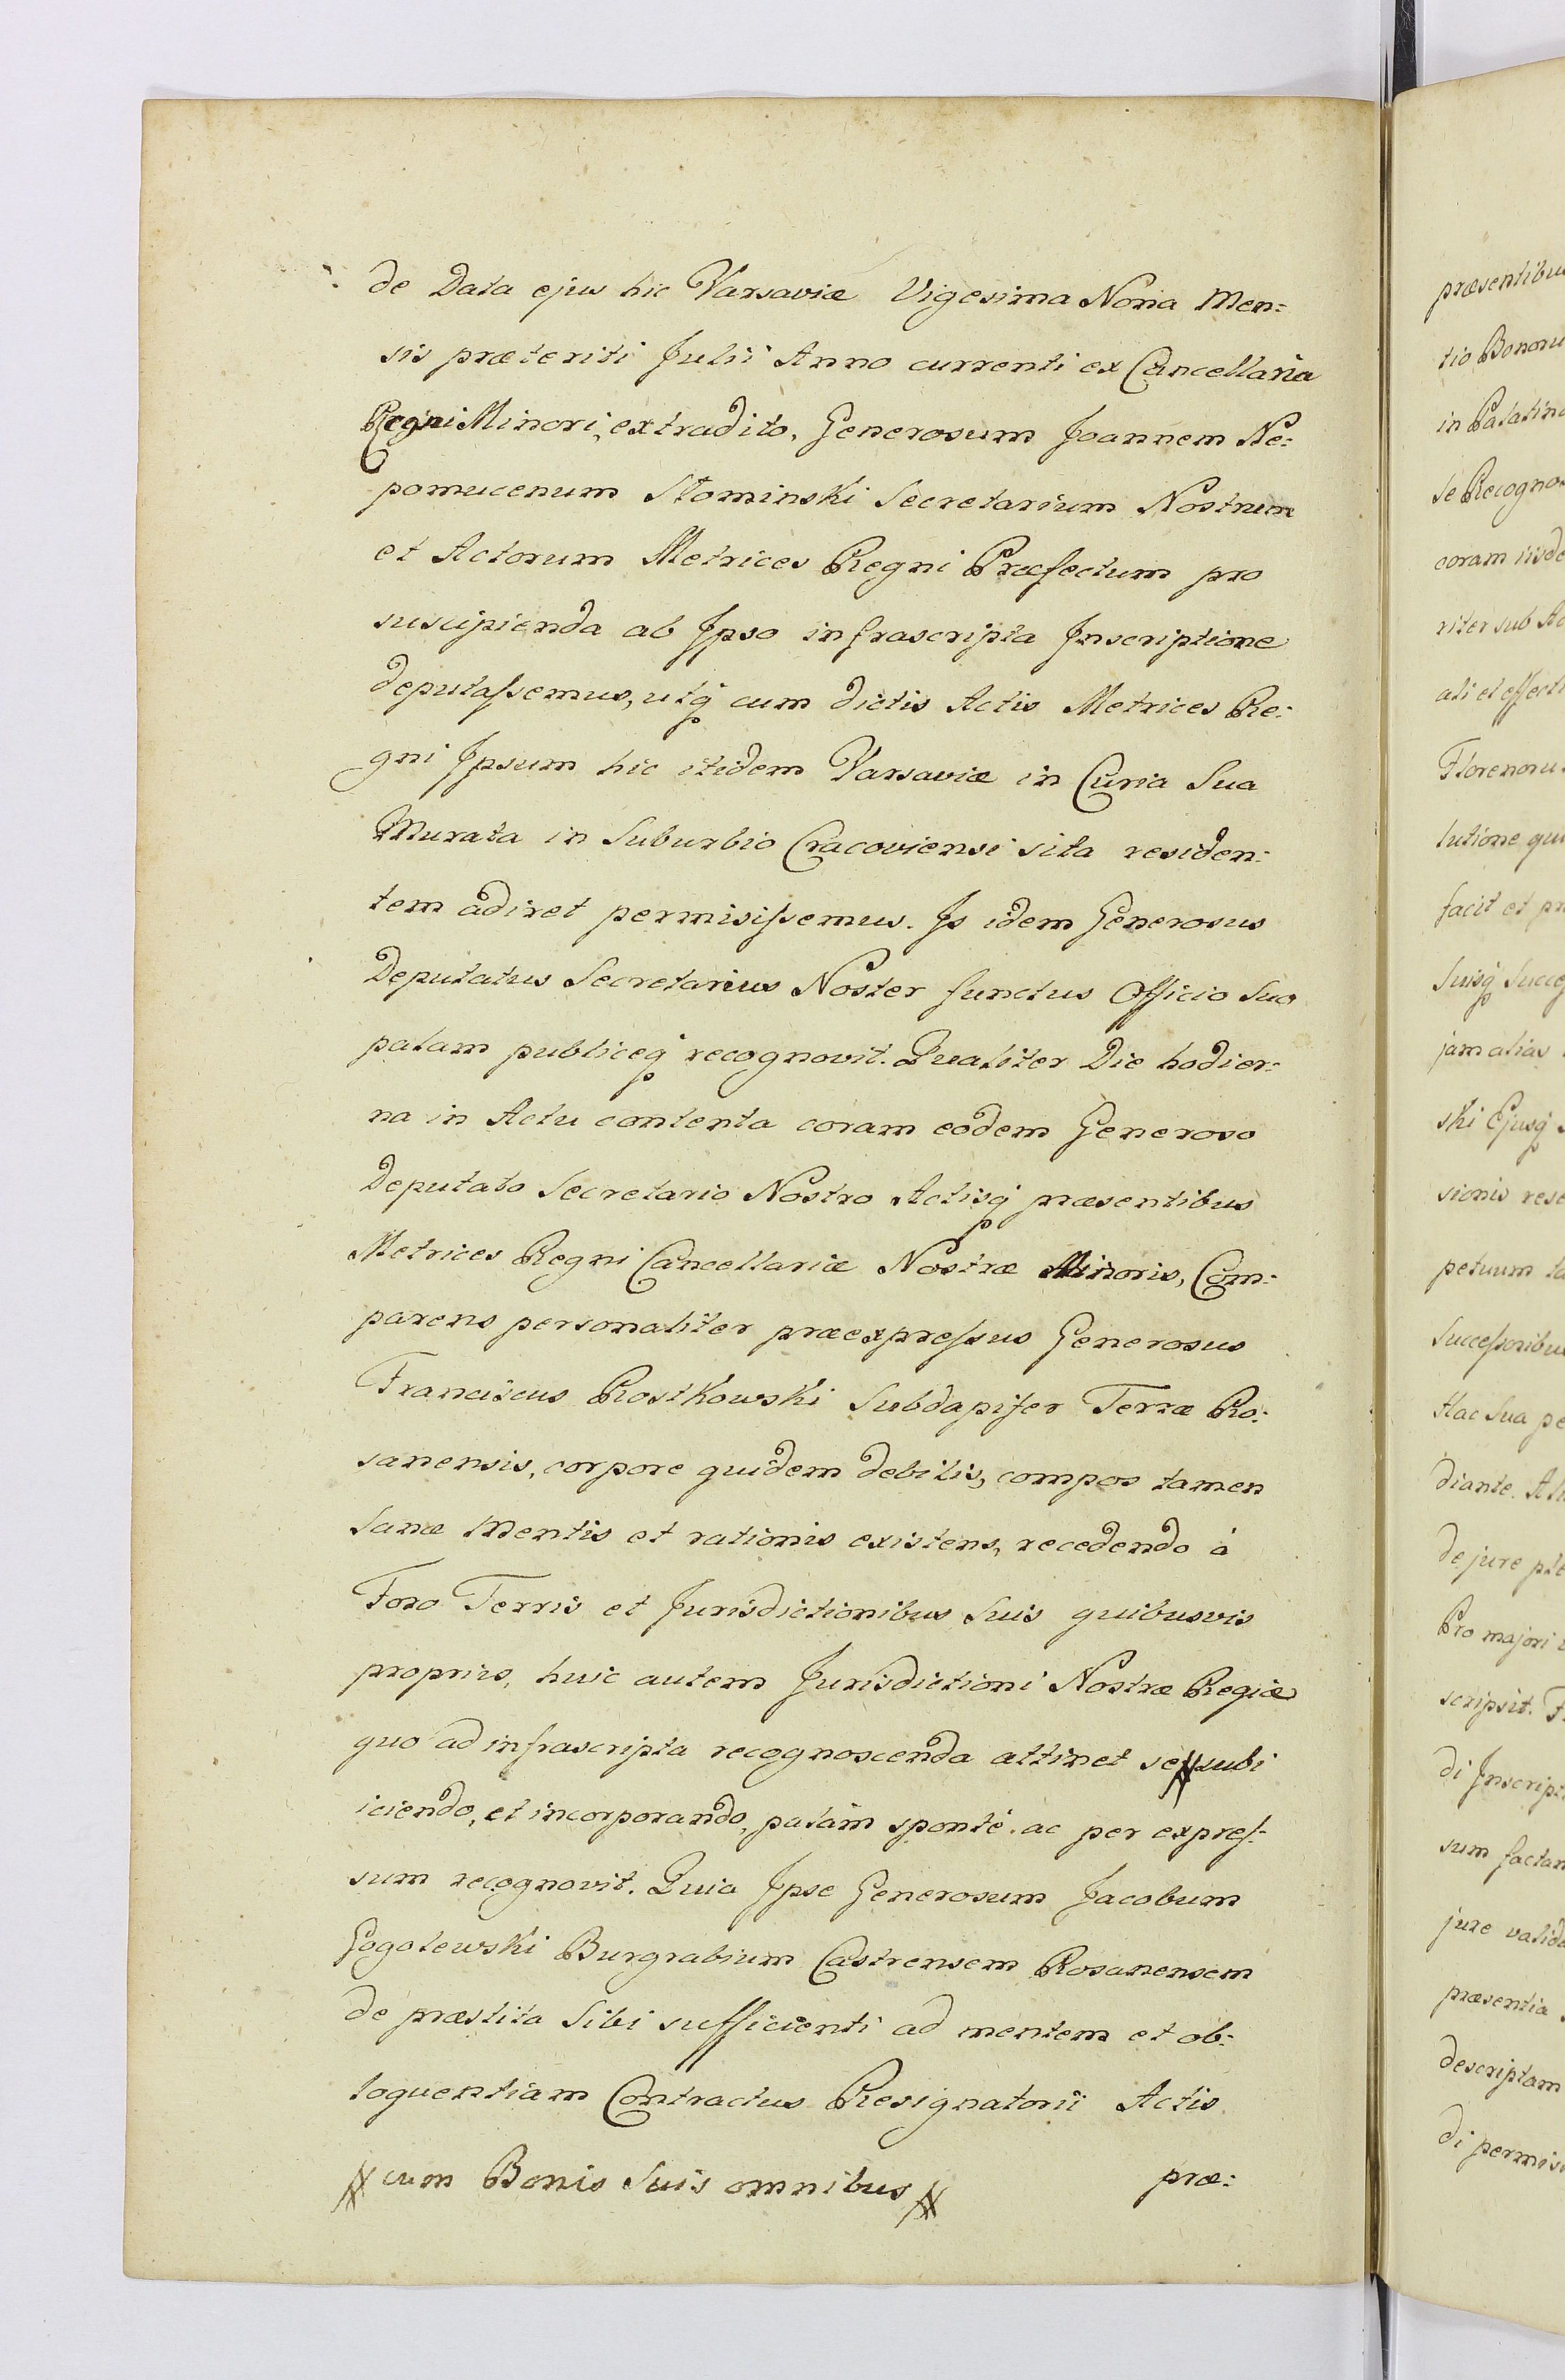 de Data ejus hic Varsaviæ Vigesima Nona Men:
sis præteriti Julii Anno currenti ex Cancellaria
Regni Minori, extradito, Generosum Joannem Ne:
pomucenum Słominski Secretarium Nostrum
et Actorum Metrices Regni Præfectum pro
suscipienda ab Ipso infrascripta Inscriptione
deputassemus, utq cum dictis Actis Metrices Re:
gni Ipsum hic itidem Varsaviæ in Curia Sua
Murata in Suburbio Cracoviensi sita residen:
tem adiret permisissemus. Is idem Generosus
Deputatus Secretarius Noster functus Officio Suo
palam publiceq recognovit. Qualiter Die hodier:
na in Actu contenta coram eodem Generoso
Deputato Secretario Nostro Actisq præsentibus
Metrices Regni Cancellariæ Nostræ Minoris, Com:
parens personaliter præexpressus Generosus
Franciscus Rostkowski Subdapifer Terræ Ro:
sanensis, corpore quidem debilis, compos tamen
Sanæ Mentis et rationis existens, recedendo à
Foro Terris et Jurisdictionibus Suis quibusvis
propriis, huic autem Jurisdictioni Nostræ Regiæ
quo ad infrascripta recognoscenda attinet se # subi
iciendo, et incorporando, palam sponte. ac per expres:
sum recognovit. Quia Ipse Generosum Jacobum
Gogolewski Burgrabium Castrensem Rosanensem
de præstita Sibi sufficienti ad mentem et ob:
loquentiam Contractus Resignatorii Actis
# cum Bonis Suis omnibus # præ:
præsentibus
tio Bonoru
in Palatin
se Recogno
coram iisde
riter sub Ac
ali et effecti
Florenoru
lutione qui
facit et pr
Suisq Succes
jam alias
ski Ejusq
sionis rese
petuum ta
Successoribus
Hac Sua pe
diante. A
de jure ple
Pro majori
scripsit. F
di Inscript
sum factam
jure valida
præsentia
descriptam
di permis